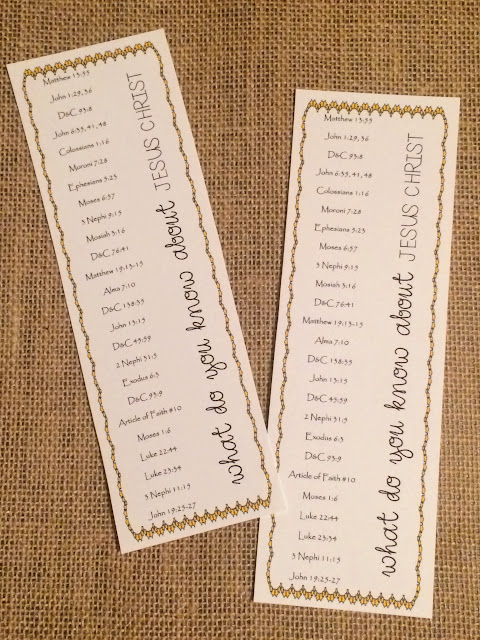 Matthew 13:55
John 1:29, 36
D&C 93:8
John 6:35, 41, 48
Colossians 1:16
Moroni 7:28
Ephesians 5:23
Moses 6:57
3 Nephi 9:15
Mosiah 3:16
D&C 76:41
Matthew 19:13-15
Alma 7:10
D&C 138:35
John 13:15
D&C 45:59
2 Nephi 31:5
Exodus 6:3
D&C 93:9
Article of Faith #10
Moses 1:6
Luke 22:44
Luke 23:34
3 Nephi 11:15
John 19:25-27
what do you know about JESUS CHRIST
Matthew 13:55
John 1:29, 36
D&C 93:8
John 6:35, 41, 48
Colossians 1:16
Moroni 7:28
Ephesians 5:23
Moses 6:57
3 Nephi 9:15
Mosiah 3:16
D&C 76:41
Matthew 19:13-15
Alma 7:10
D&C 138:35
John 13:15
D&C 45:59
2 Nephi 31:5
Exodus 6:3
D&C 93:9
Article of Faith #10
Moses 1:6
Luke 22:44
Luke 23:34
3 Nephi 11:15
John 19:25-27
what do you know about JESUS CHRIST